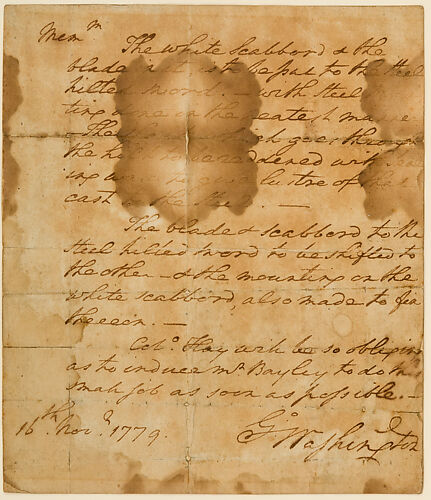 Mem.m
The white Scabbord & the
blade in it is to be put to the Steel
hilted Sword. — with Steel
ting done in the neatest manner
which goes through
the hilt
lustre of that
cast —
The blade & scabbord to the
steel hilted sword to be shifted to
the other — & the mounting on the
white scabbord, also made to fix
thereon. —
Colo. Hay will be so obliging
as to induce Mr. Bayley to do this
small job as soon as possible. —
Go. Washington
16th. Novr. 1779.